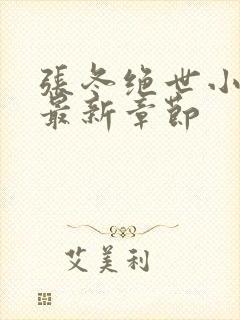 張冬绝世小
最新章節
艾美利